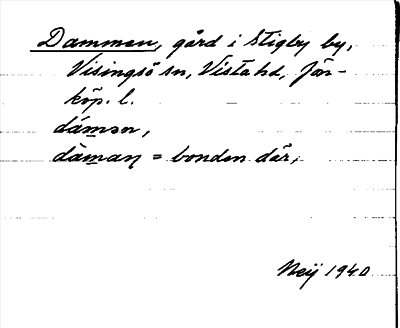 Dammen, gård i Stigby by,
Visingsö sn, Vista hd, Jön-
köp. l.
dámən,
dàmaɳ = bonden där,
Neij 1940